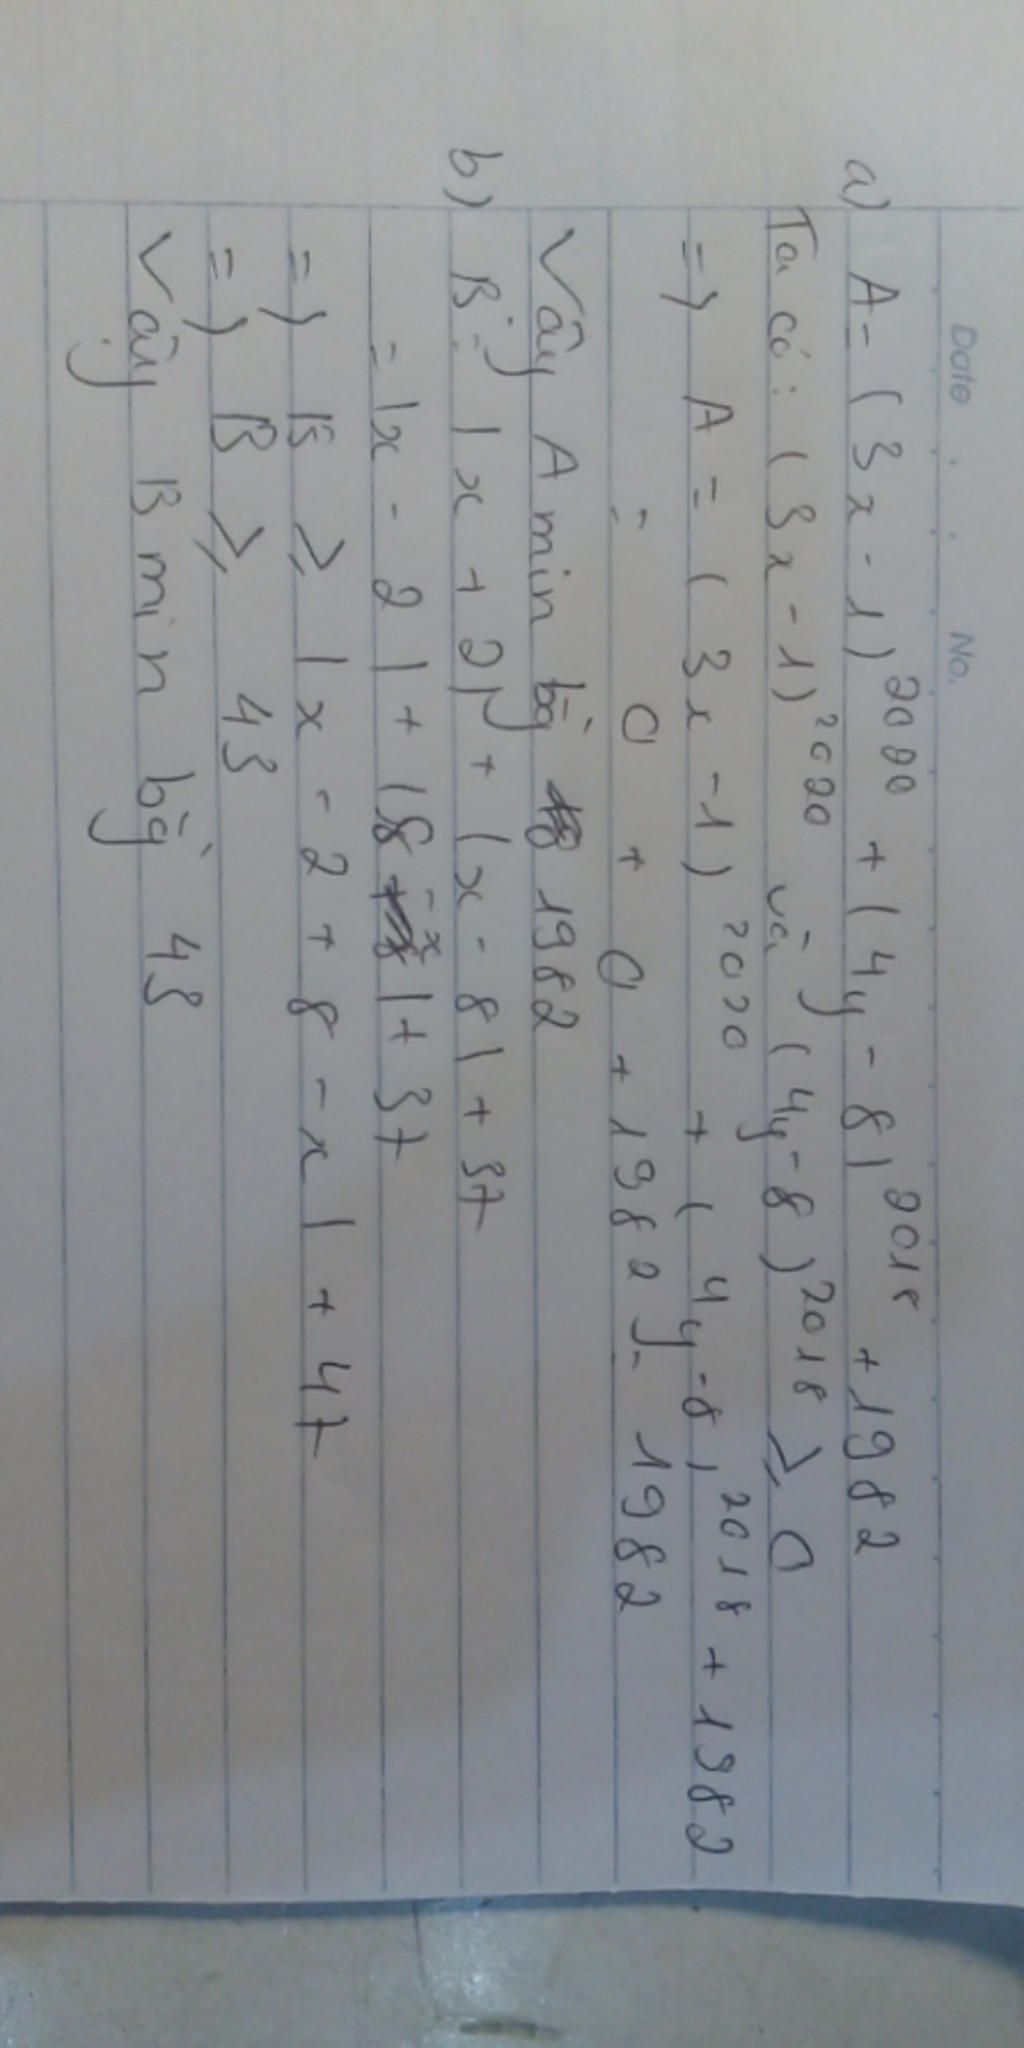 Date No.
a) A = (3x - 1)²⁰²⁰ + (4y - 8)²⁰¹⁸ + 1982
Ta có: (3x - 1)²⁰²⁰ và (4y - 8)²⁰¹⁸ ≥ 0
=) A = (3x - 1)²⁰²⁰ + (4y - 8)²⁰¹⁸ + 1982
= 0 + 0 + 1982 = 1982
Vây A min bg 1982
b) B = | x + 2 | + | x - 8 | + 37
= |x - 2 | + | 8 - x | + 37
=) B ≥ | x - 2 + 8 - x | + 47
=) B ≥ 43
Vậy B min bg 43